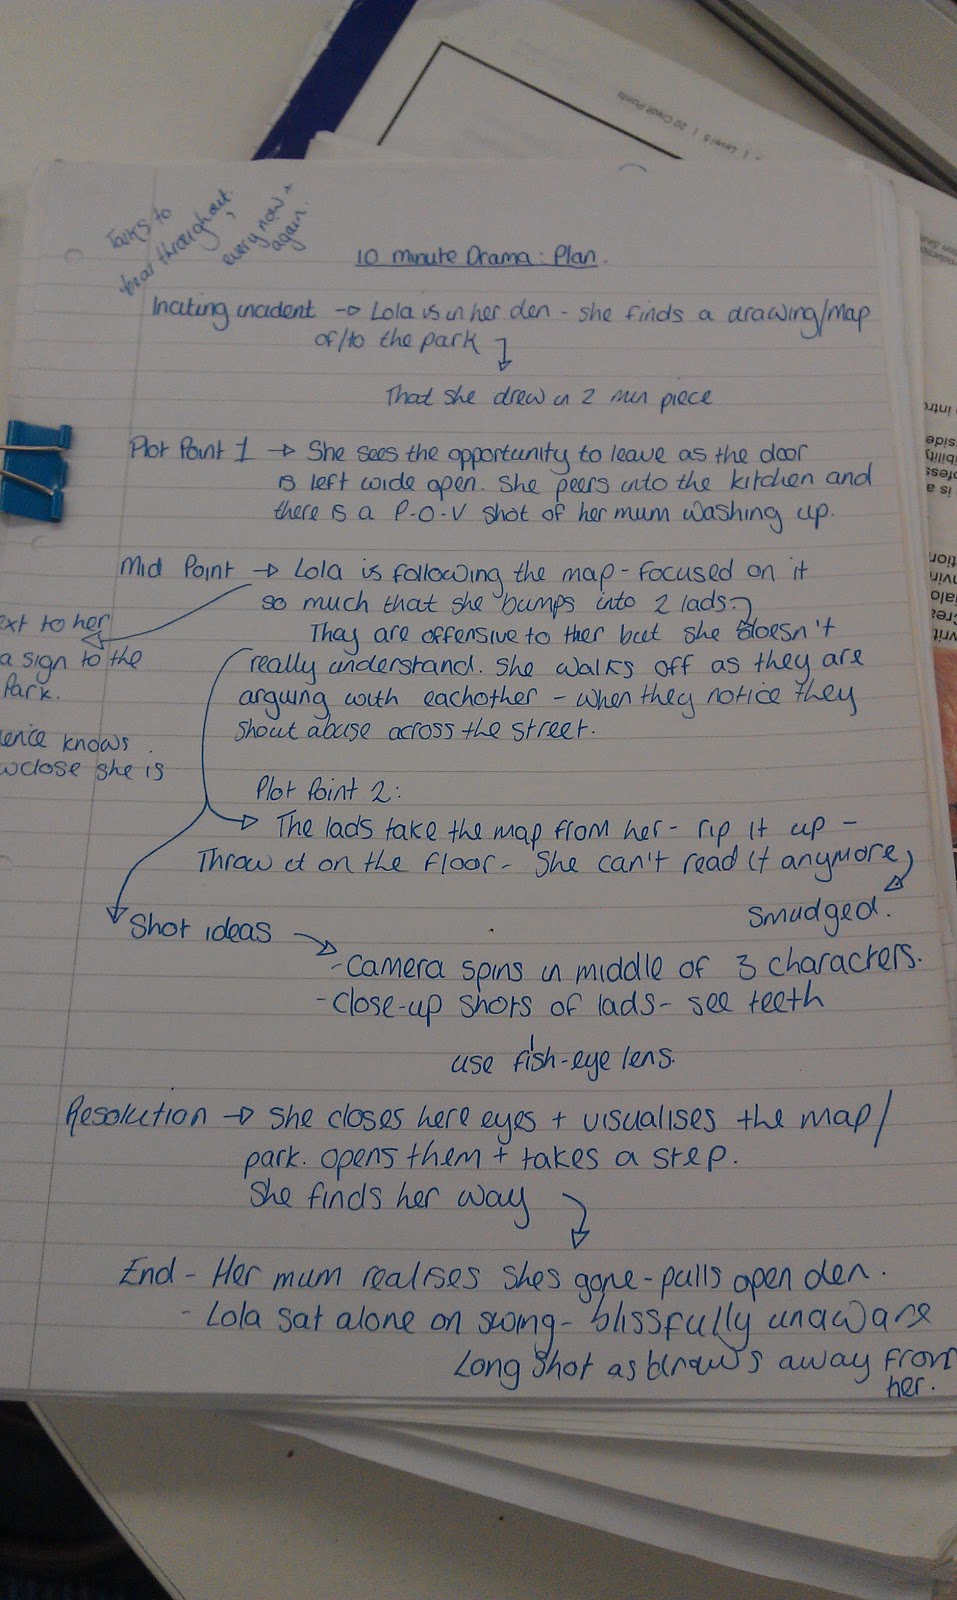 Level 5 | 20 Credit Points
Talks to
bear throughout,
every now +
again.
10 Minute Drama: Plan.
Inciting incident → Lola is in her den - she finds a drawing/map
of/to the park
That she drew in 2 min piece
Plot Point 1 → She sees the opportunity to leave as the door
is left wide open. She peers into the kitchen and
there is a P-O-V shot of her mum washing up.
Mid Point → Lola is following the map - focused on it
so much that she bumps into 2 lads.
They are offensive to ther but she doesn't
really understand. She walks off as they are
arguing with eachother - when they notice they
shout abuse across the street.
ext to her
a sign to the
Park.
ience knows
w close she is
Plot Point 2:
→ The lads take the map from her - rip it up -
Throw it on the floor - She can't read it anymore
Smudged.
Shot ideas →
- Camera spins in middle of 3 characters.
- close-up shots of lads - see teeth
use fish-eye lens.
Resolution → She closes here eyes + visualises the map/
park. opens them + takes a step.
She finds her way
End - Her mum realises shes gone - pulls open den.
- Lola sat alone on swing - blissfully unaware
Long Shot as draws away from
her.